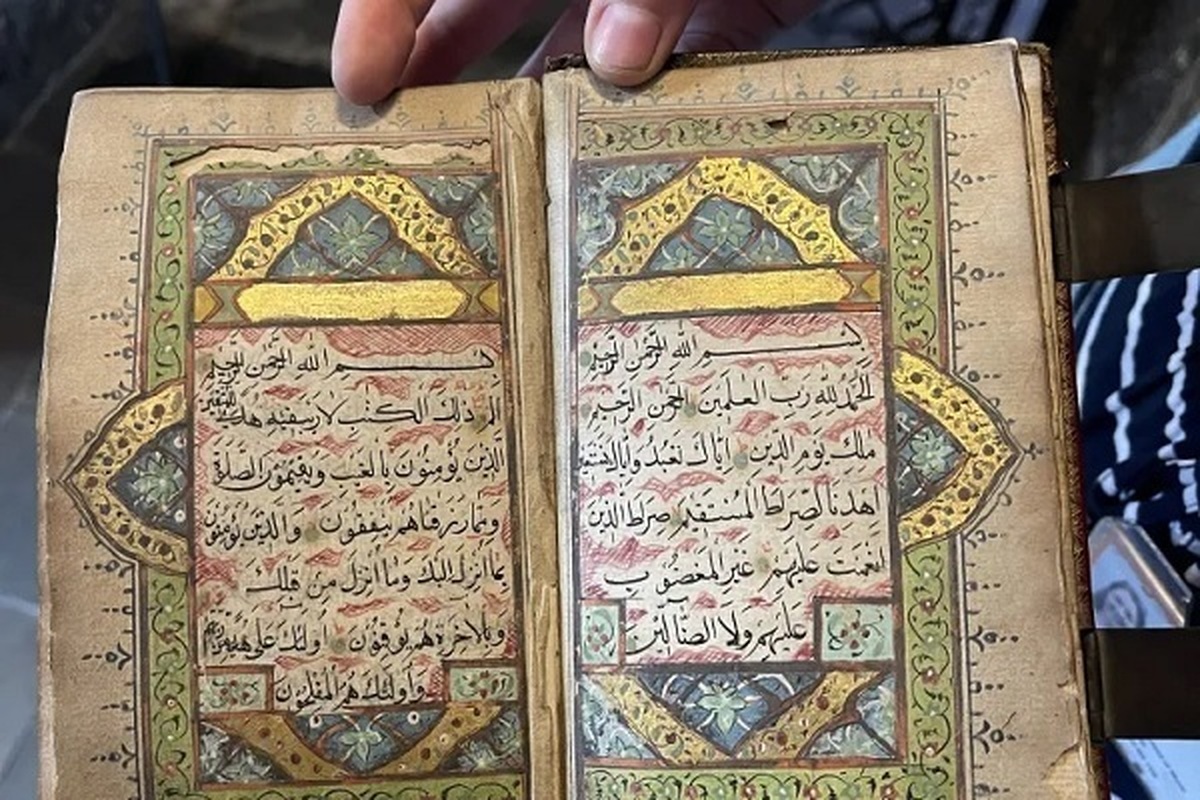 بسم الله الرحمن الرحيم
الحمد لله رب العلمين الرحمن الرحيم
ملك يوم الدين إياك نعبد وإياك نستعين
اهدنا الصرط المستقيم صرط الذين
أنعمت عليهم غير المغضوب
عليهم ولا الضالين
بسم الله الرحمن الرحيم
الم ذلك الكتب لا ريب فيه هدى للمتقين
الذين يؤمنون بالغيب ويقيمون الصلوة
ومما رزقناهم ينفقون والذين يؤمنون
بما أنزل إليك وما أنزل من قبلك
وبالآخرة هم يوقنون أولئك على هدى من ربهم
وأولئك هم المفلحون